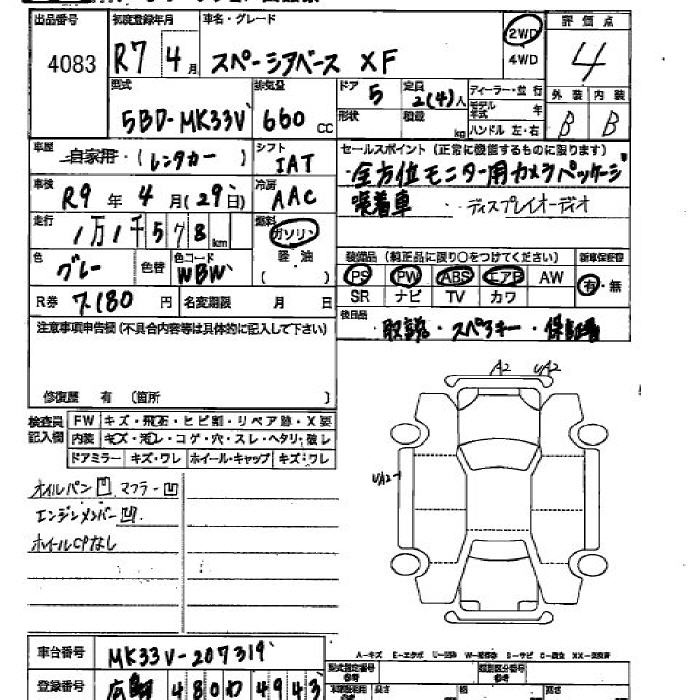 出品番号 初度登録年月 車名・グレード 評価点
4083 R7 4月 スペーシアベース XF 2WD 4WD 4
型式 排気量 ドア 定員 ディーラー・並行 外装 内装
5BD-MK33V 660cc 5 2(4)人 モデル年式 年 B B
形状 積載 kg ハンドル 左・右
車歴 自家用・(レンタカー) シフト IAT セールスポイント (正常に機能するものに限ります)
車検 R9年 4月(29日) 冷房 AAC 全方位モニター用カメラパッケージ
装着車 ディスプレイオーディオ
走行 1万1千578km 燃料 ガソリン 軽油 ( )
色 グレー 色替 色コード WBW
装備品 (純正品に限り○をつけてください) 新車保証書
PS PW ABS エアB AW 有・無
SR ナビ TV カワ
R券 7,180円 名変期限 月 日
後日品 取説・スペアキー・保証書
注意事項申告欄(不具合内容等は具体的に記入して下さい)
修復歴 有 (箇所 )
A2 UA2
検査員記入欄 FW キズ・飛石・ヒビ割・リペア跡・X要
内装 キズ・汚レ・コゲ・穴・スレ・ヘタリ・破レ
ドアミラー キズ・ワレ ホイール・キャップ キズ・ワレ
UA2-1
オイルパン凹 マフラー凹
エンジンメンバー凹
ホイールCPなし
車台番号 MK33V-207319
A-キズ E-エクボ
型式指定番号 参考 類別区分番号 参考
登録番号 広島 480 わ 4943
長さ 幅 高さ